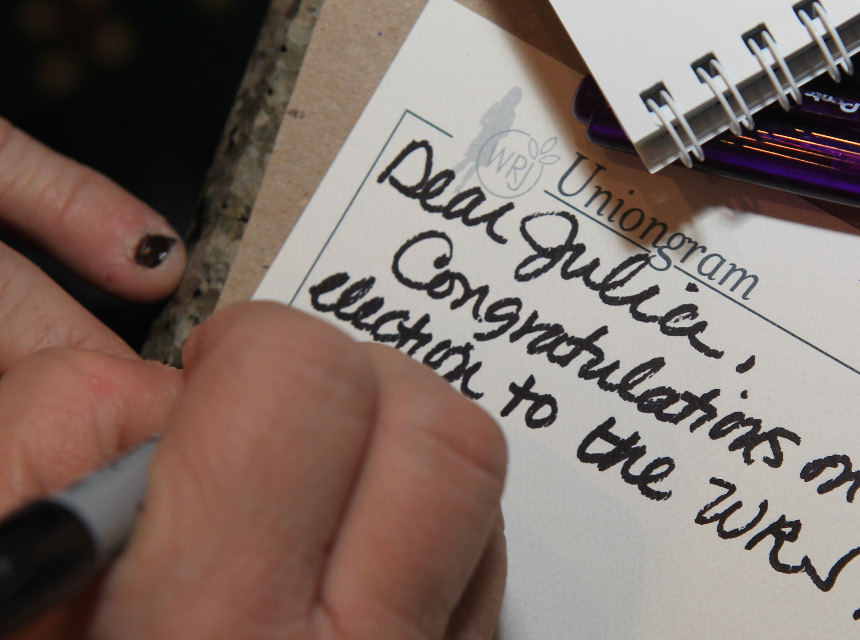 WRJ
Uniongram
Dear Julie,
Congratulations on
election to the WRJ